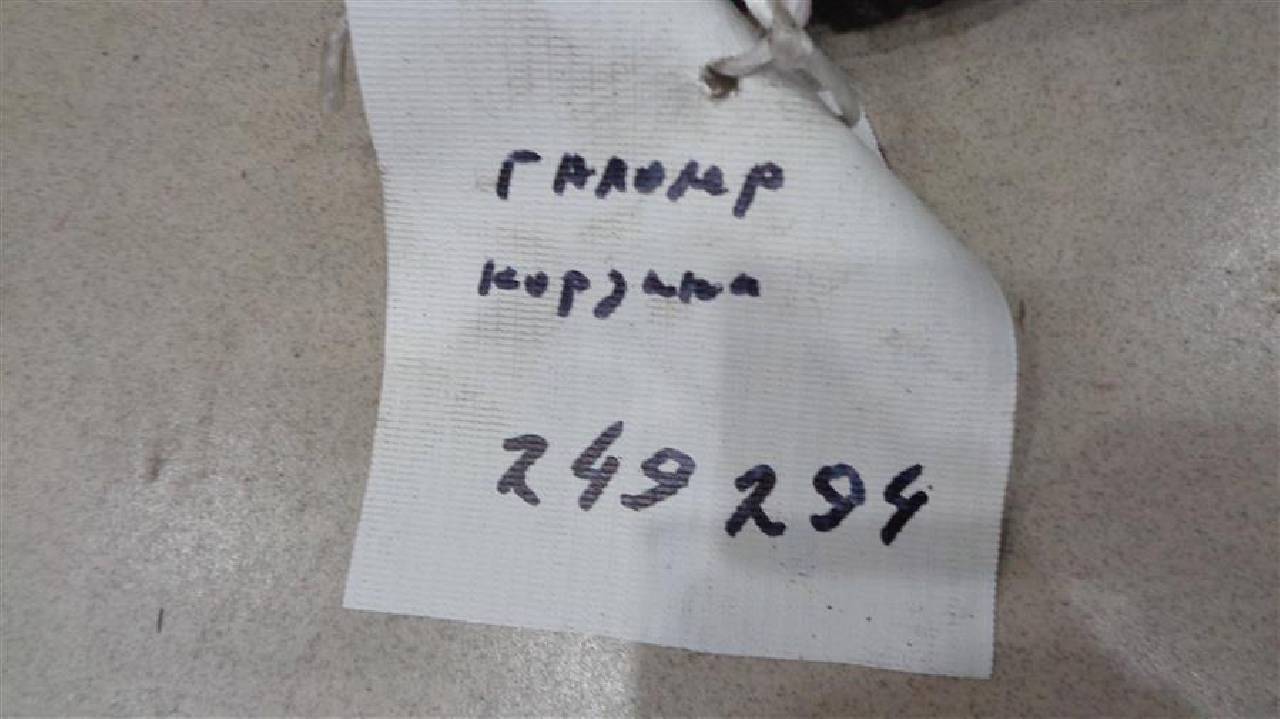 галопер
корзина
249 294